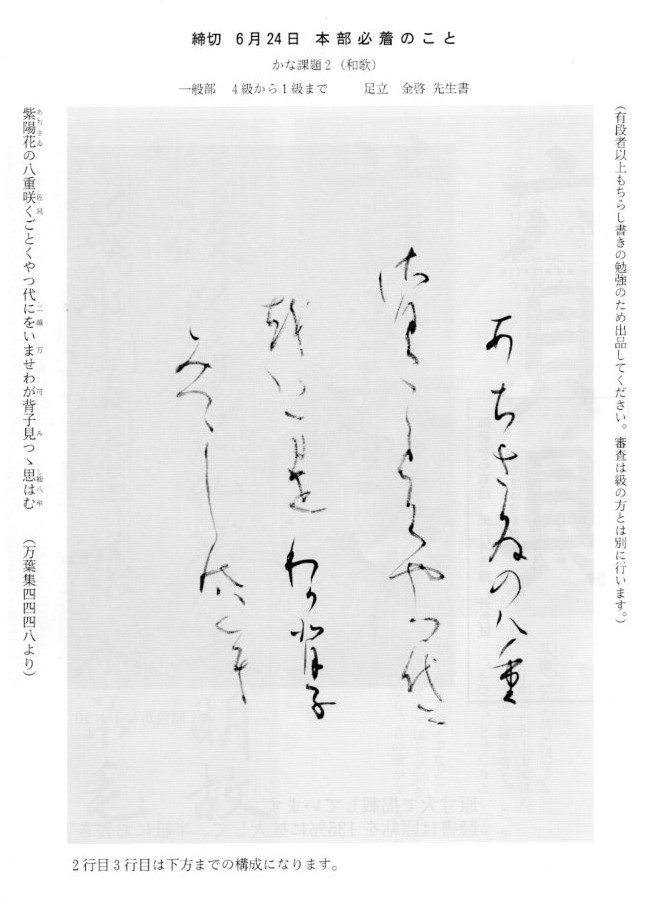 締切 6月24日 本部必着のこと
かな課題2（和歌）
一般部 4級から1級まで 足立 金啓 先生書
（有段者以上もちらし書きの勉強のため出品してください。審査は級の方とは別に行います。）
あちさゐの八重
佐具ことくやつ代二
越いま世わか背子
みつゝし能八牟
紫陽花の八重咲くごとくやつ代にをいませわが背子見つゝ思はむ （万葉集四四四八より）
2行目3行目は下方までの構成になります。